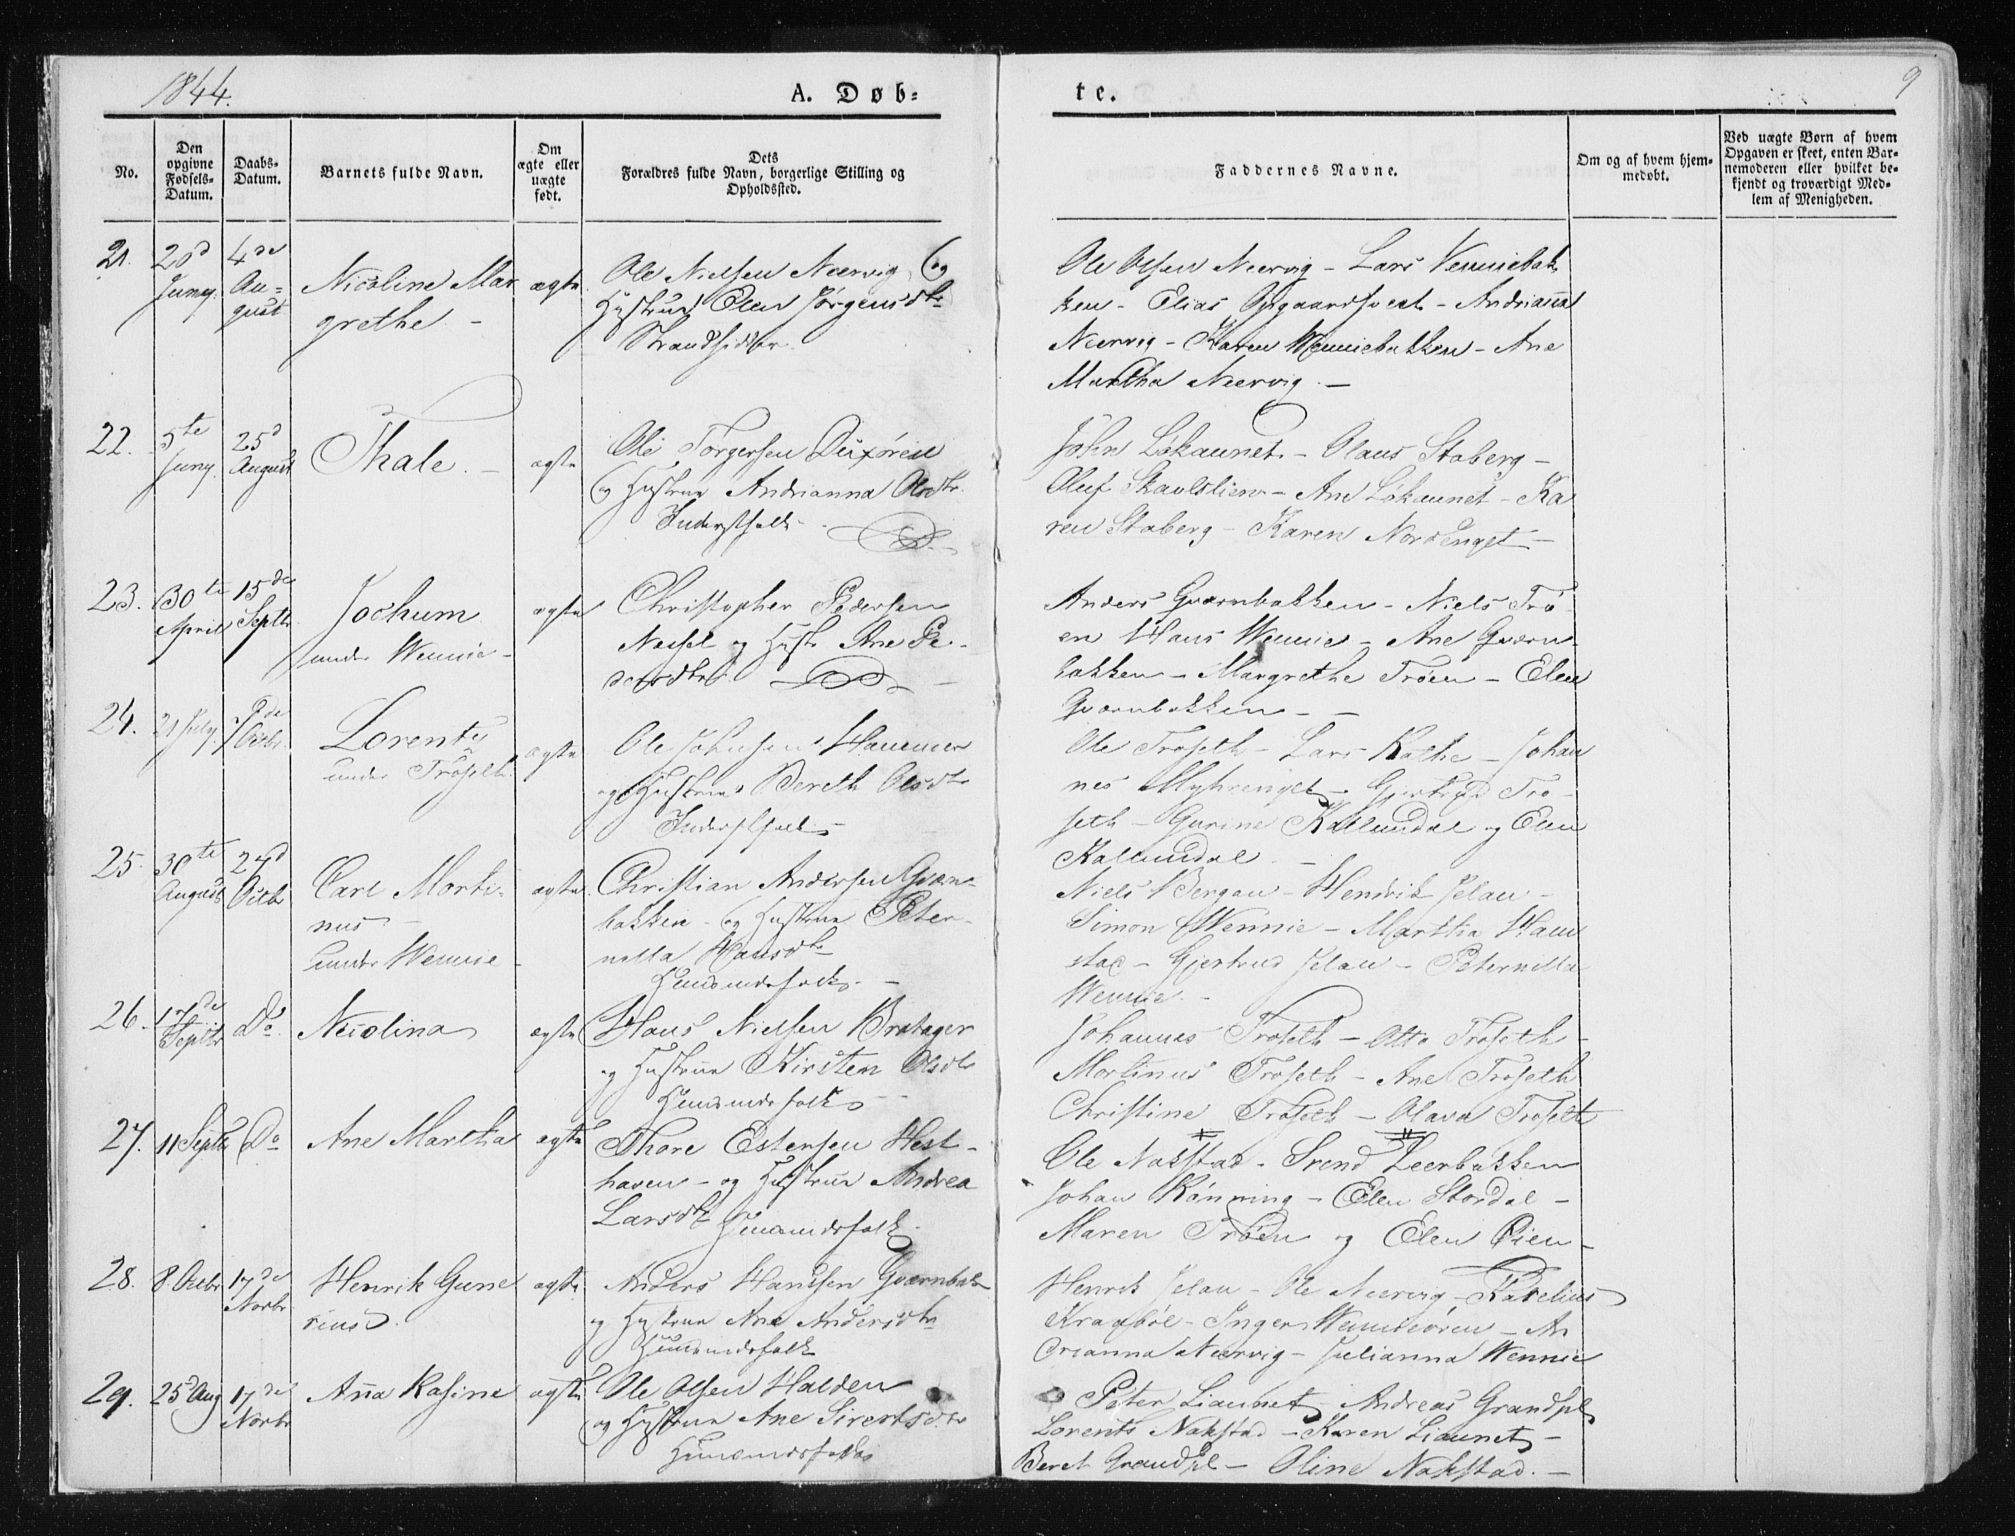 1844.
A. Døb-
te.
9
No.
Den
opgivne
Fødsels-
Datum.
Daabs-
Datum.
Barnets fulde Navn.
Om
ægte eller
uægte
født.
Dets
Forældres fulde Navn, borgerlige Stilling og
Opholdssted.
Faddernes Navne.
Om og af hvem hjem-
medøbt.
Ved uægte Børn af hvem
Opgaven er skeet, enten Bar-
nemoderen eller hvilket be-
kjendt og troværdigt Med-
lem af Menigheden.
21.
20d
Juny
4de
Au-
gust
Nicoline Mar
grethe -
ægte
Ole Nielsen Neervig, og
Hustrue Elen Jørgensdtr
Strandsidder
Ole Olsen Neervig - Lars Venniebak
ken - Elias Opgaardhvedt - Andrianna
Neervig - Karen Wenniebakken - Ane
Martha Neervig. -
22.
5te
Juny
25d
August
Thale. -
ægte
Ole Torgersen
og Hustrue Andrianna Olsdtr.
Inderstfolk -
John Løkaunet - Olaus Staberg -
Oluf Skavlslien - Ane Løkaunet - Ka
ren Staberg - Karen Nordenget -
23.
30te
April
15de
Septbr
Jochum
under Wennie -
ægte
Christopher Pedersen
og Hustr Ane Pe-
dersdtr.
Anders Qværnbakken - Niels Trø
en Hans Wennie - Ane Qværn
bakken - Margrethe Trøen - Elen
Qværnbakken - -
24.
21 July
Octbr.
Lorents
under Trøseth.
ægte
Ole Johnsen Hammer
og Hustrue Bereth Olsdtr
Inderstfolk -
Ole Trøseth - Lars Kothe - Johan
nes Myhrenget - Gjertrud Trø-
seth - Gurine Kallundal og Elen
Kallundal -
25.
30te
August
27d
Octbr
Carl Morti-
nus -
under Wennie -
ægte
Christian Andersen Qværn-
bakken - og Hustrue Peter-
nella Hansdtr
Huusmandsfolk. -
Niels Bergan - Hendrik Jelan -
Simon Wennie - Martha Ham
stad - Gjertrud Jelan - Peternella
Wennie. -
26.
17de
Septbr
Do.
Nicolina
ægte
Hans Nielsen Bratager
og Hustrue Kirsten Olsdtr
Huusmandsfolk -
Johannes Trøseth - Otto Trøseth -
Mortinus Trøseth - Ane Trøseth
Christine Trøseth - Olava Trøseth
27.
11 Septbr
Do
Ane Martha
ægte
Thore Estensen Hest-
haven - og Hustrue Andrea
Larsdtr Huusmandsfolk.
Ole Nakstad - Svend Leerbakken
Johan Rønning - Elen Stordal -
Maren Trøen og Elen Lien -
28.
8 Octbr
17de
Novbr
Henrik Gune
rius.
ægte
Anders Hansen Qværnbak
og Hustrue Ane Andersdtr
Huusmandsfolk
Henrik Jelan - Ole Neervig - Kornelius
Kragbøl - Inger Wennieøren - An
drianna Neervig - Julianna Wennie
29.
25d Aug
17de
Novbr
Anna Kasine
ægte
Ole Olsen Halden
og Hustrue Ane Sivertsdtr
Huusmandsfolk
Peter Liaunet - Andreas Grandpl
Lorents Nakstad - Karen Liaunet -
Beret Grandpl - Oline Nakstad. -